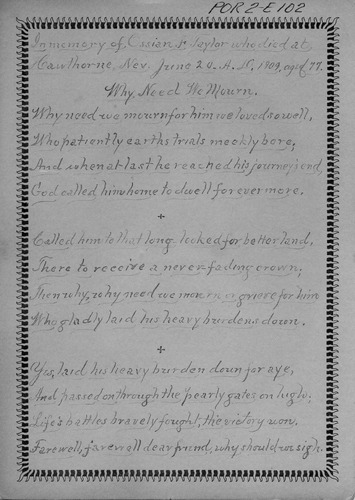 POR2-E102
In memory of Ossian L. Taylor who died at
Hawthorne, Nev. June 24. A.D. 1909, aged 77.
Why Need We Mourn.
Why need we mourn for him we loved so well,
Who patiently earths trials meekly bore;
And when at last he reached his journey's end,
God called him home to dwell forevermore.
+
Called him to that long looked for better land,
There to receive a never-fading crown;
Then why, why need we mourn or grieve for him
Who gladly laid his heavy burdens down.
+
Yes, laid his heavy burden down for aye,
And passed on through the pearly gates on high;
Life's battles bravely fought, the victory won.
Farewell, farewell dear friend, why should we sigh.